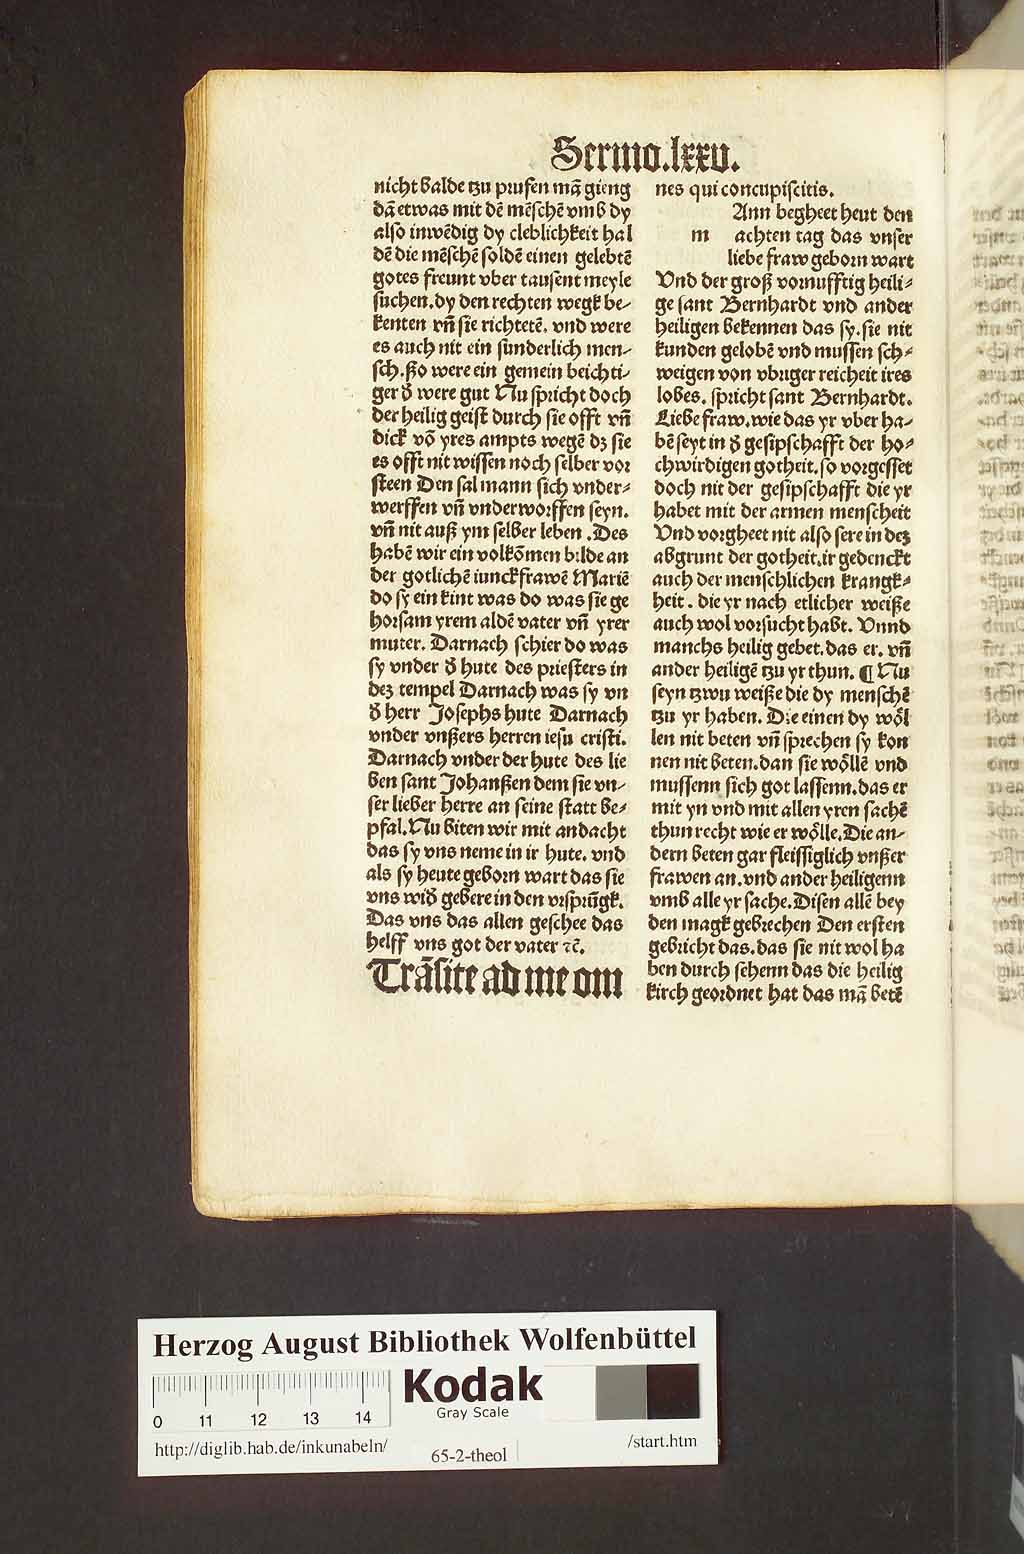 Sermo.lxxv.
nicht balde tzu prufen mā gieng
dā etwas mit dē mēschē vmb dy
also inwēdig dy cleblichkeit hal
dē die mēschē soldē einen gelebtē
gotes freunt vber tausent meyle
suchen.dy den rechten wegk be⸗
kenten vñ sie richtetē. vnd were
es auch nit ein sunderlich men⸗
sch.ßo were ein gemein beichti⸗
ger d̄ were gut Nu spricht doch
der heilig geist durch sie offt vñ
dick vō yres ampts wegē dz sie
es offt nit wissen noch selber vor
steen Den sal mann sich vnder⸗
werffen vñ vnderworffen seyn.
vñ nit auß ym selber leben .Des
habē wir ein volkōmen bilde an
der gotlichē iunckfrawē Mariē
do sy ein kint was do was sie ge
horsam yrem aldē vater vñ yrer
muter. Darnach schier do was
sy vnder d̄ hute des priesters in
dez tempel Darnach was sy vn
d̄ herr Josephs hute Darnach
vnder vnßers herren iesu cristi.
Darnach vnder der hute des lie
ben sant Johanßen dem sie vn⸗
ser lieber herre an seine statt be⸗
pfal.Nu biten wir mit andacht
das sy vns neme in ir hute. vnd
als sy heute geborn wart das sie
vns wid̄ gebere in den vrsprūgk.
Das vns das allen geschee das
helff vns got der vater ⁊ē.
Trāsite ad me om
nes qui concupiscitis.
Ann begheet heut den
m achten tag das vnser
liebe fraw geborn wart
Vnd der groß vornufftig heili⸗
ge sant Bernhardt vnd ander
heiligen bekennen das sy.sie nit
kunden gelobē vnd mussen sch⸗
weigen von vbriger reicheit ires
lobes. spricht sant Bernhardt.
Liebe fraw.wie das yr vber ha⸗
bē seyt in d̄ gesipschafft der ho⸗
chwirdigen gotheit.so vorgesset
doch nit der gesipschafft die yr
habet mit der armen menscheit
Vnd vorgheet nit also sere in dez
abgrunt der gotheit.ir gedenckt
auch der menschlichen krangk⸗
heit. die yr nach etlicher weiße
auch wol vorsucht habt. Vnnd
manchs heilig gebet.das er. vñ
ander heiligē tzu yr thun. ¶ Nu
seyn tzwu weiße die dy menschē
tzu yr haben. Die einen dy wöl
len nit beten vñ sprechen sy kon
nen nit beten.dan sie wöllē vnd
mussenn sich got lassenn.das er
mit yn vnd mit allen yren sachē
thun recht wie er wölle.Die an⸗
dern beten gar fleissiglich vnßer
frawen an.vnd ander heiligenn
vmb alle yr sache.Disen allē bey
den magk gebrechen Den ersten
gebricht das.das sie nit wol ha
ben durch sehenn das die heilig
kirch geordnet hat das mā betē
Herzog August Bibliothek Wolfenbüttel
Kodak
Gray Scale
0 11 12 13 14
http://diglib.hab.de/inkunabeln/
65-2-theol
/start.htm